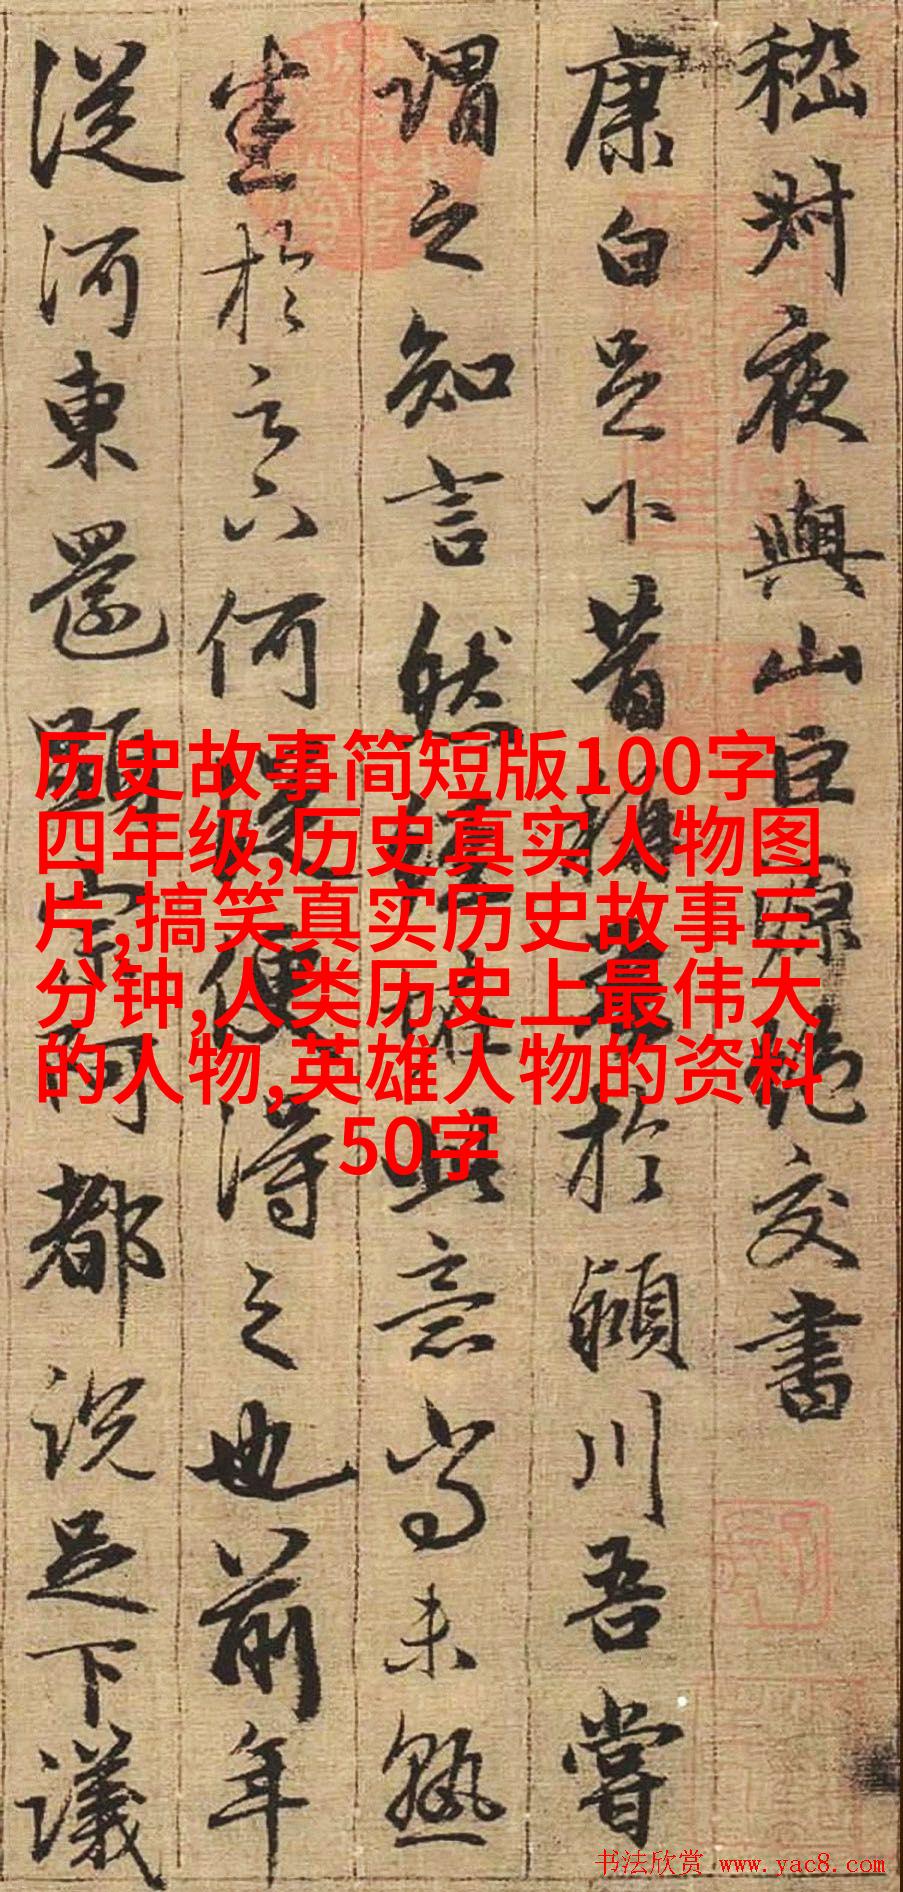 嵇叔夜與山巨源絶交書
康白足下昔稱吾於潁川吾嘗
謂之知言然經怪此意尚未熟
於足下何從便得之也前年
從河東還顯宗阿都說足下議
历史故事简短版100字
四年级,历史真实人物图
片,搞笑真实历史故事三
分钟,人类历史上最伟大
的人物,英雄人物的资料
50字
书法欣赏 www.yac8.com